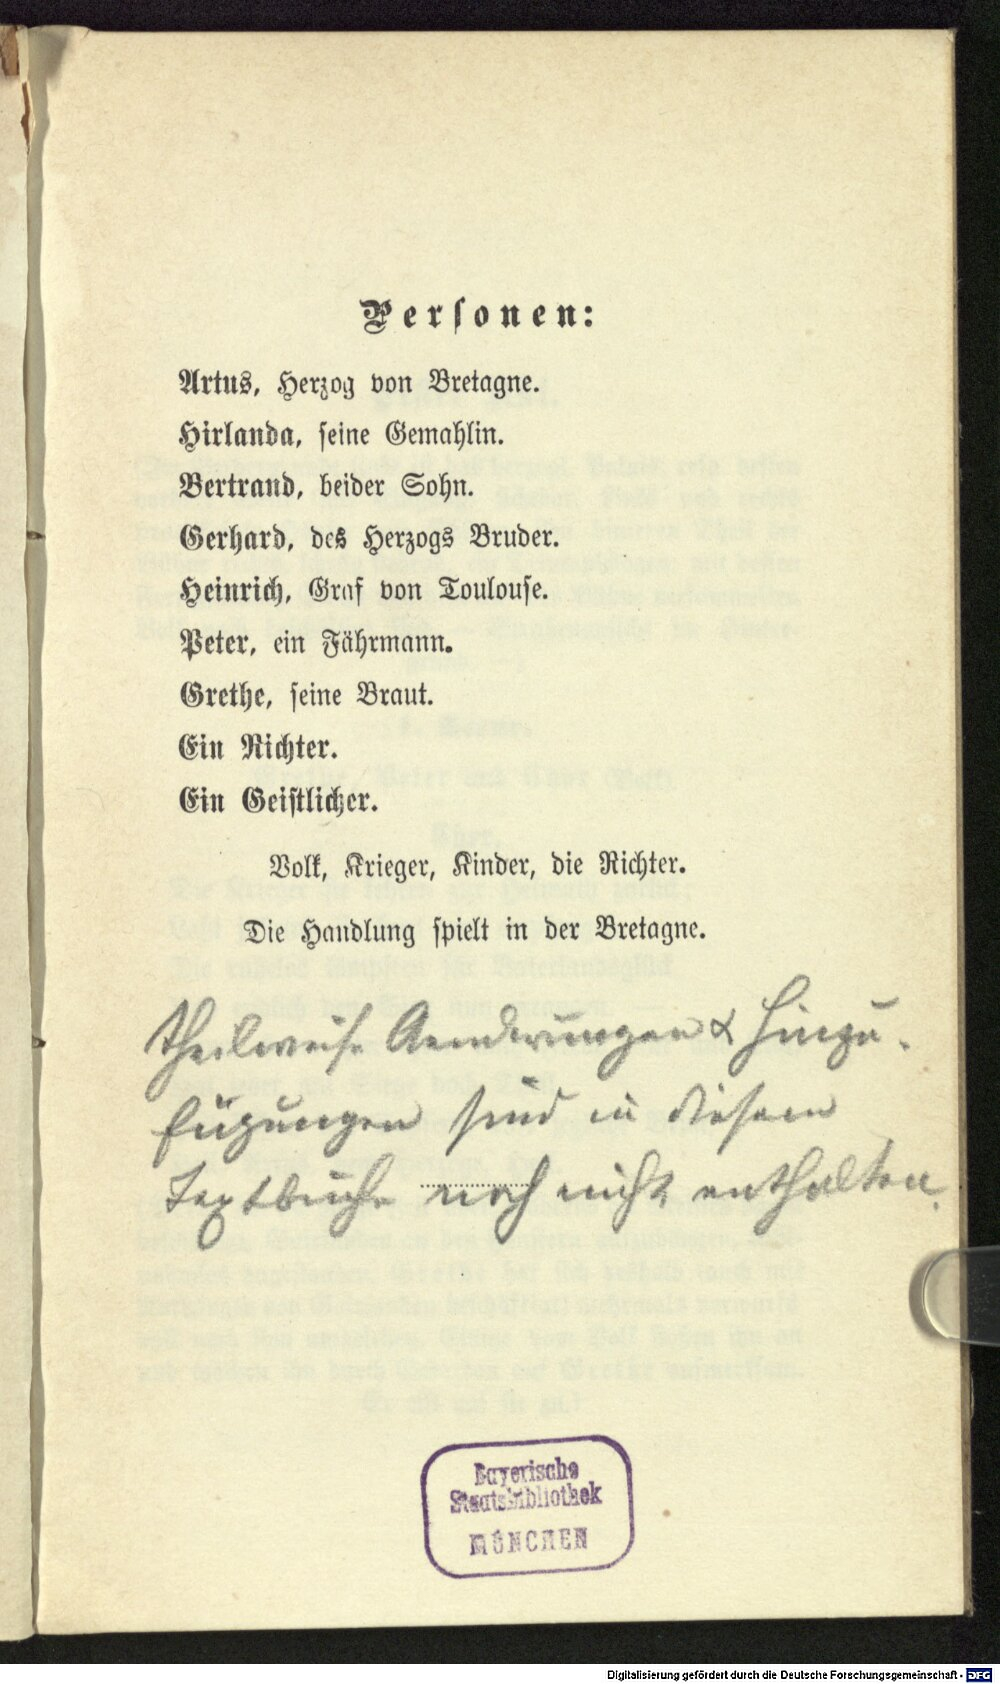 Personen:
Artus, Herzog von Bretagne.
Hirlanda, seine Gemahlin.
Bertrand, beider Sohn.
Gerhard, des Herzogs Bruder.
Heinrich, Graf von Toulouse.
Peter, ein Fährmann.
Grethe, seine Braut.
Ein Richter.
Ein Geistlicher.
Volk, Krieger, Kinder, die Richter.
Die Handlung spielt in der Bretagne.
Theilweise Aenderungen & Hinzu-
fügungen sind in diesem
Textbuche noch nicht enthalten.
Bayerische
Staatsbibliothek
MÜNCHEN
Digitalisierung gefördert durch die Deutsche Forschungsgemeinschaft - DFG